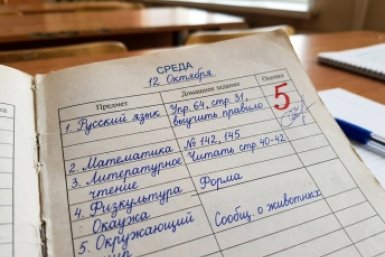 СРЕДА
12 Октября
Предмет Домашнее задание Оценка
1. Русский язык Упр. 64, стр. 31, 5
выучить правило
2. Математика № 142, 145
3. Литературное Читать стр. 40-42
чтение
4. Физкультура Форма
Окаужа
5. Окружающий Сообщ. о животных
мир